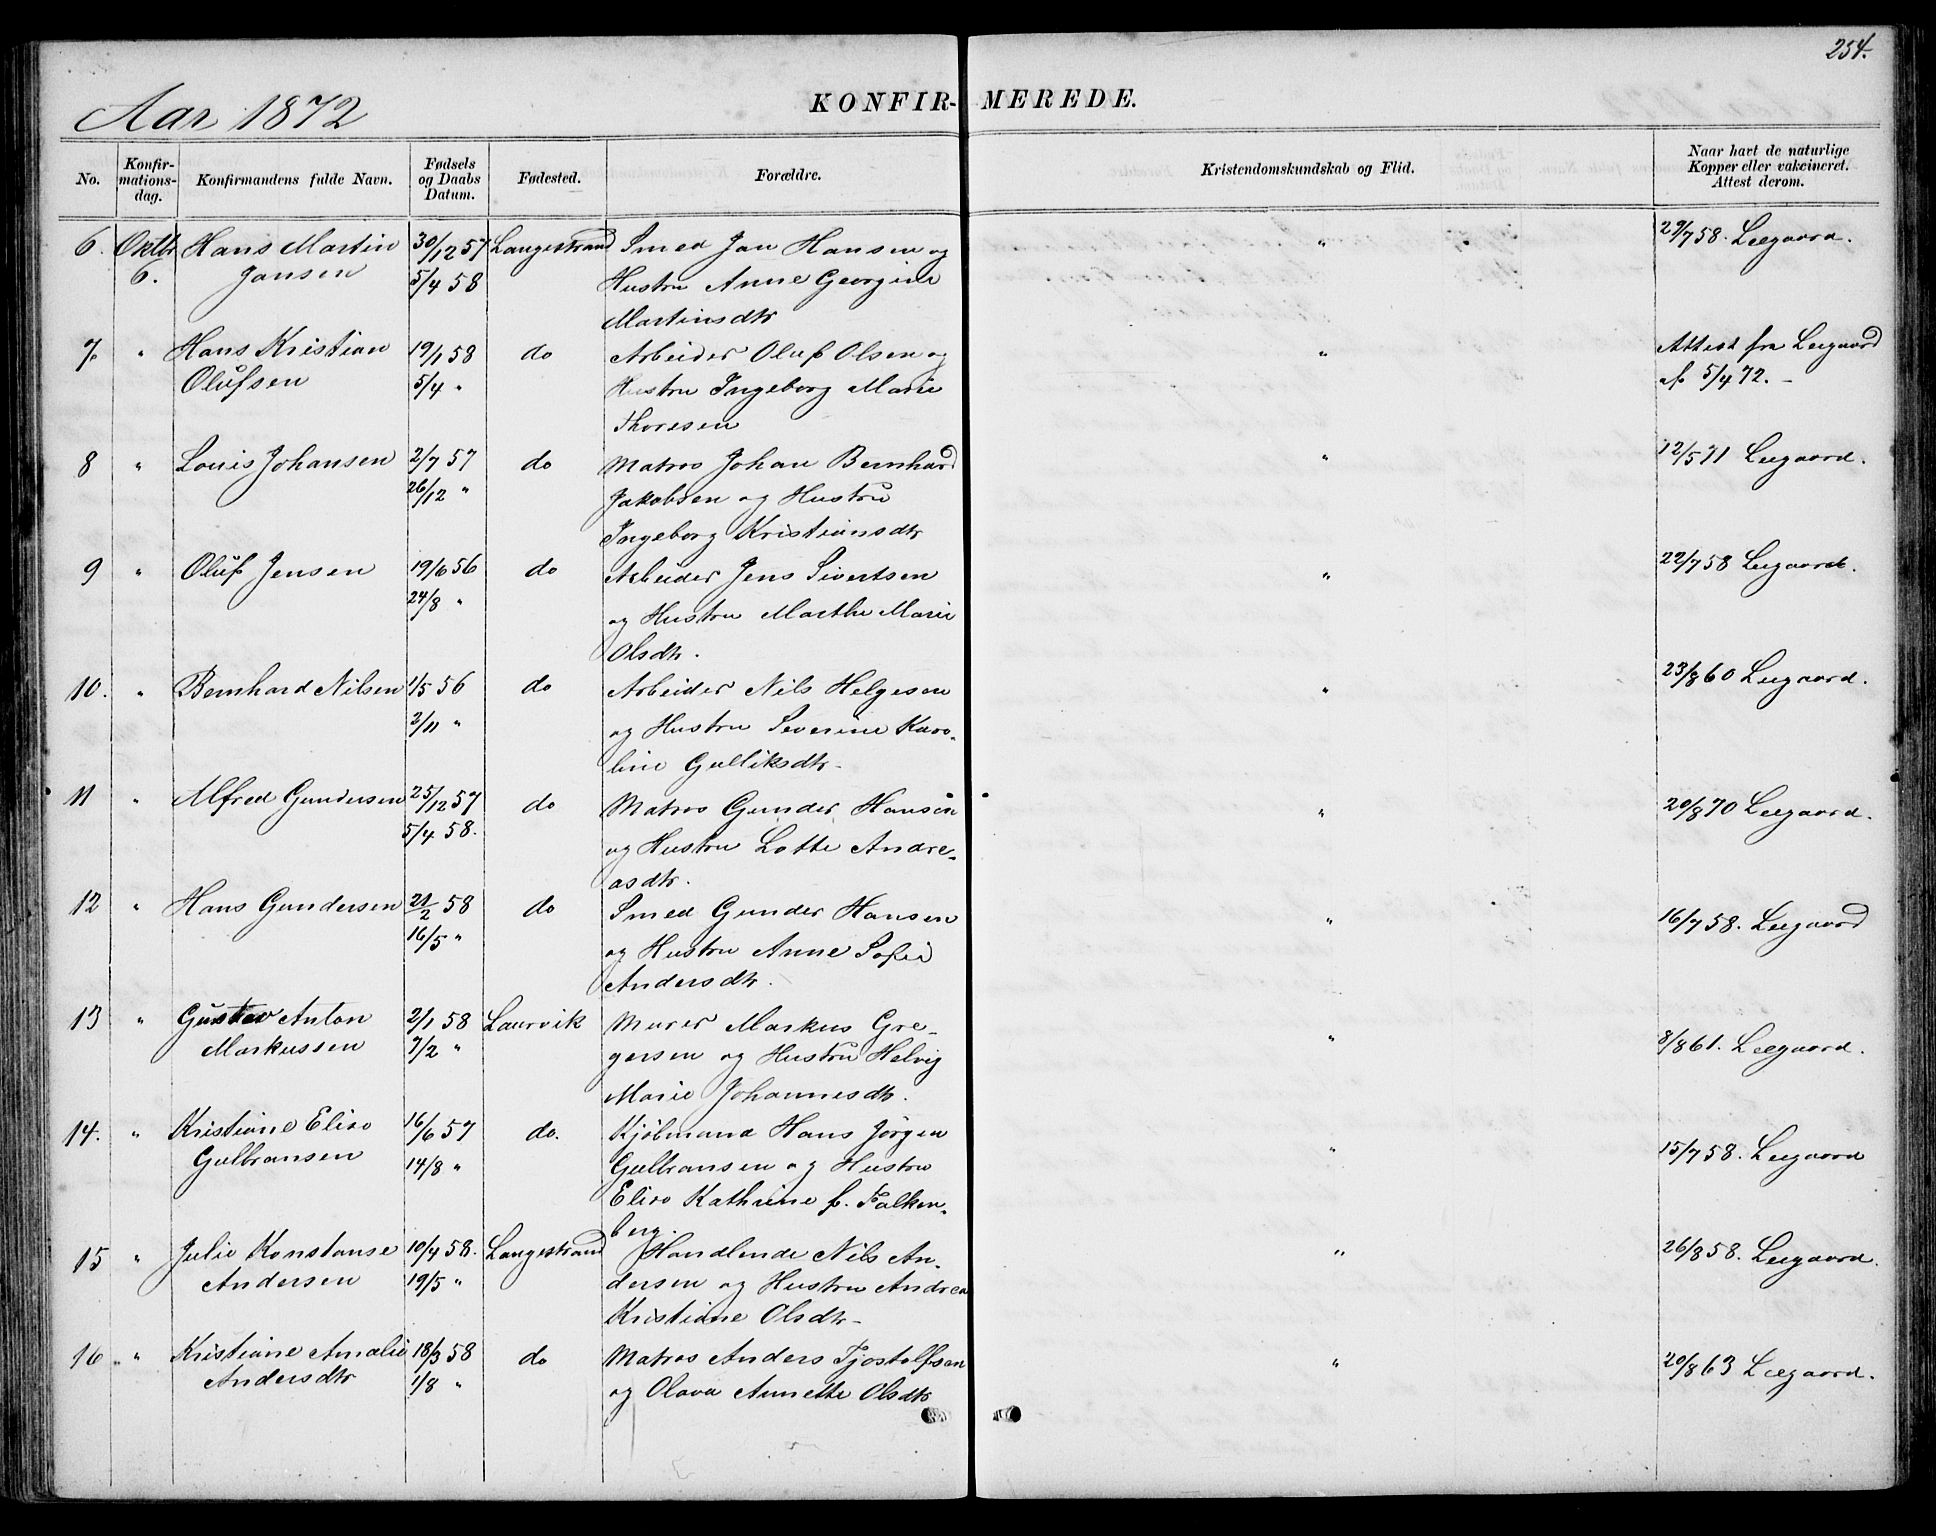 254.
Aar 1872
KONFIR- MEREDE.
No.
Konfir-
mations-
dag.
Konfirmandens fulde Navn.
Fødsels
og Daabs
Datum.
Fødested.
Forældre.
Kristendomskundskab og Flid.
Naar havt de naturlige
Kopper eller vakcineret.
Attest derom.
6. Oktbr Hans Martin 30/12 57 Langestrand Smed Jan Hansen og " 29/7 58. Leegaard.
6. Jansen 5/4 58 Hustru Anne Georgine
Martinsdtr
7. " Hans Kristian 19/1 58 do Arbeider Oluf Olsen og " Attest fra Leegaard
Olufsen 5/4 " Hustru Ingeborg Marie af 5/4 72. -
Thoresen
8 " Louis Johansen 2/7 57 do Matros Johan Bernhard " 12/5 71 Leegaard.
26/12 " Jakobsen og Hustru
Ingeborg Kristiansdtr
9 " Oluf Jensen 19/6 56 do Arbeider Jens Sivertsen " 22/7 58 Leegaard.
24/8 " og Hustru Marthe Marie
Olsdtr.
10. " Bernhard Nilsen 1/5 56 do Arbeider Nils Helgesen " 23/8 60 Leegaard.
2/11 " og Hustru Severine Karo-
line Gulliksdtr-
11 " Alfred Gundersen 25/12 57 do Matros Gunder Hansen " 20/8 70 Leegaard.
5/4 58. og Hustru Lotte Andre-
asdtr.
12 " Hans Gundersen 21/2 58 do Smed Gunder Hansen " 16/7 58. Leegaard
16/5 " og Hustru Anne Sofie
Andersdtr.
13 " Gustav Anton 2/1 58 Laurvik Murer Markus Gre- " 8/8 61. Leegaard.
Markussen 7/2 " gersen og Hustru Helvig
Marie Johannesdtr.
14. " Kristiane Elise 16/6 57 do. Kjøbmand Hans Jørgen " 15/7 58. Leegaard
Gulbransen 14/8 " Gulbransen og Hustru
Elise Kathrine f. Falken-
berg.
15 " Julie Konstanse 10/4 58. Langestrand Handlende Nils An- " 26/8 58. Leegaard.
Andersen 19/5 " dersen og Hustru Andrea
Kristiane Olsdtr-
16. " Kristiane Amalie 18/3 58 do Matros Anders Tjostolfsen " 20/8 63 Leegaard.
Andersdtr 1/8 " og Olava Annette Olsdtr